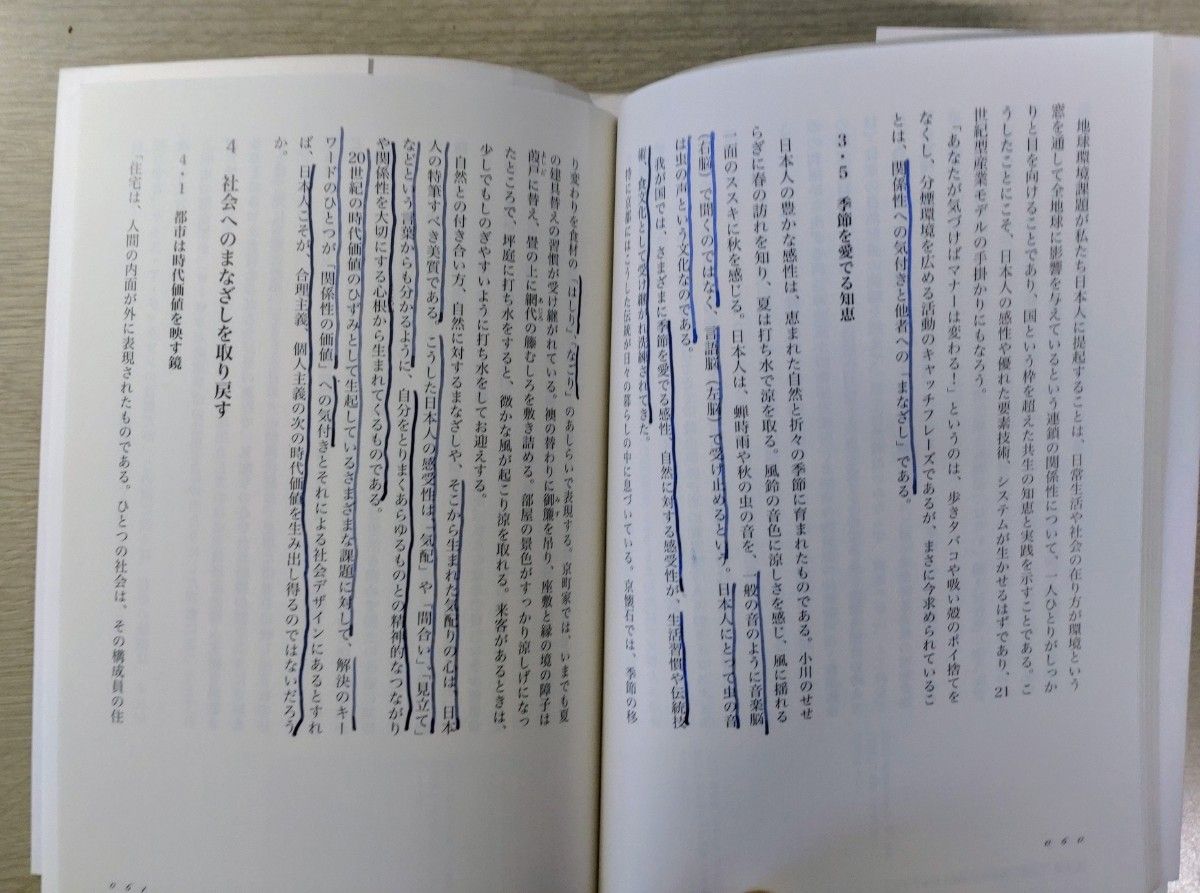 地球環境課題が私たち日本人に提起することは、日常生活や社会の在り方が環境という
窓を通して全地球に影響を与えているという連鎖の関係性について、一人ひとりがしっか
りと目を向けることであり、国という枠を超えた共生の知恵と実践を示すことである。こ
うしたことにこそ、日本人の感性や優れた要素技術、システムが生かせるはずであり、21
世紀型産業モデルの手掛かりにもなろう。
「あなたが気づけばマナーは変わる！」というのは、歩きタバコや吸い殻のポイ捨てを
なくし、分煙環境を広める活動のキャッチフレーズであるが、まさに今求められているこ
とは、関係性への気付きと他者への「まなざし」である。
3・5 季節を愛でる知恵
日本人の豊かな感性は、恵まれた自然と折々の季節に育まれたものである。小川のせせ
らぎに春の訪れを知り、夏は打ち水で涼を取る。風鈴の音色に涼しさを感じ、風に揺れる
一面のススキに秋を感じる。日本人は、蝉時雨や秋の虫の音を、一般の音のように音楽脳
（右脳）で聞くのではなく、言語脳（左脳）で受け止めるという。日本人にとって虫の音
は虫の声という文化なのである。
我が国では、さまざまに季節を愛でる感性、自然に対する感受性が、生活習慣や伝統技
術、食文化として受け継がれ洗練されてきた。
特に京都にはそうした伝統が日々の暮らしの中に息づいている。京懐石では、季節の移
060
り変わりを食材の「はしり」「なごり」のあしらいで表現する。京町家では、いまでも夏
の建具替えの習慣が受け継がれている。襖の替わりに御簾を吊り、座敷と縁の境の障子は
葭戸に替え、畳の上に網代の籐むしろを敷き詰める。部屋の景色がすっかり涼しげになっ
たところで、坪庭に打ち水をすると、微かな風が起こり涼を取れる。来客があるときは、
少しでもしのぎやすいように打ち水をしてお迎えする。
自然との付き合い方、自然に対するまなざしや、そこから生まれた気配りの心は、日本
人の特筆すべき美質である。こうした日本人の感受性は、「気配」や「間合い」、「見立て」
などという言葉からも分かるように、自分をとりまくあらゆるものとの精神的なつながり
や関係性を大切にする心根から生まれてくるものである。
20世紀の時代価値のひずみとして生起しているさまざまな課題に対して、解決のキー
ワードのひとつが、「関係性の価値」への気付きとそれによる社会デザインにあるとすれ
ば、日本人こそが、合理主義、個人主義の次の時代価値を生み出し得るのではないだろう
か。
4 社会へのまなざしを取り戻す
4・1 都市は時代価値を映す鏡
「住宅は、人間の内面が外に表現されたものである。ひとつの社会は、その構成員の住
061